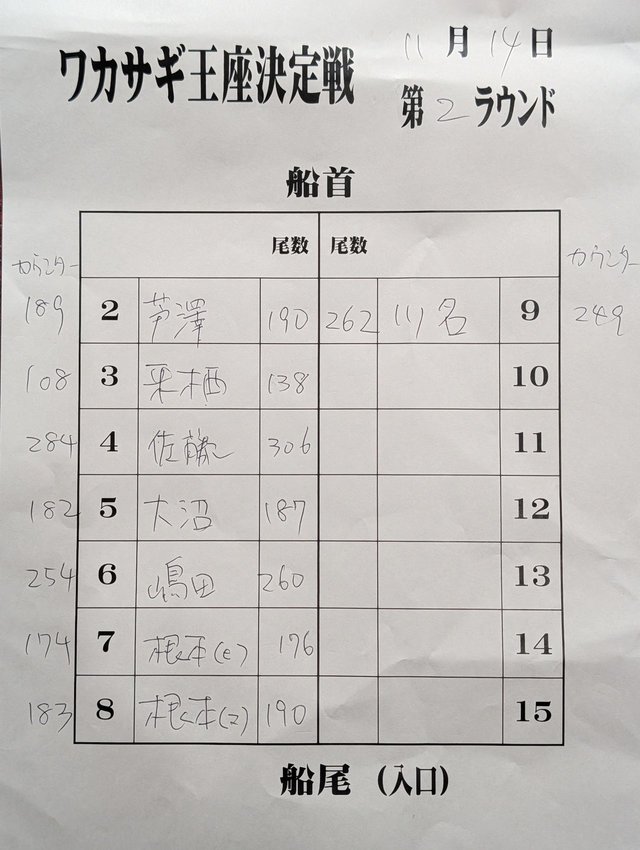 ワカサギ王座決定戦
11月14日
第2ラウンド
船首
尾数 尾数
カウンター カウンター
189 2 芦澤 190 262 川名 9 249
108 3 来栖 138 10
284 4 佐藤 306 11
182 5 大沼 187 12
254 6 嶋田 260 13
174 7 根本(e) 176 14
183 8 根本(マ) 190 15
船尾 (入口)